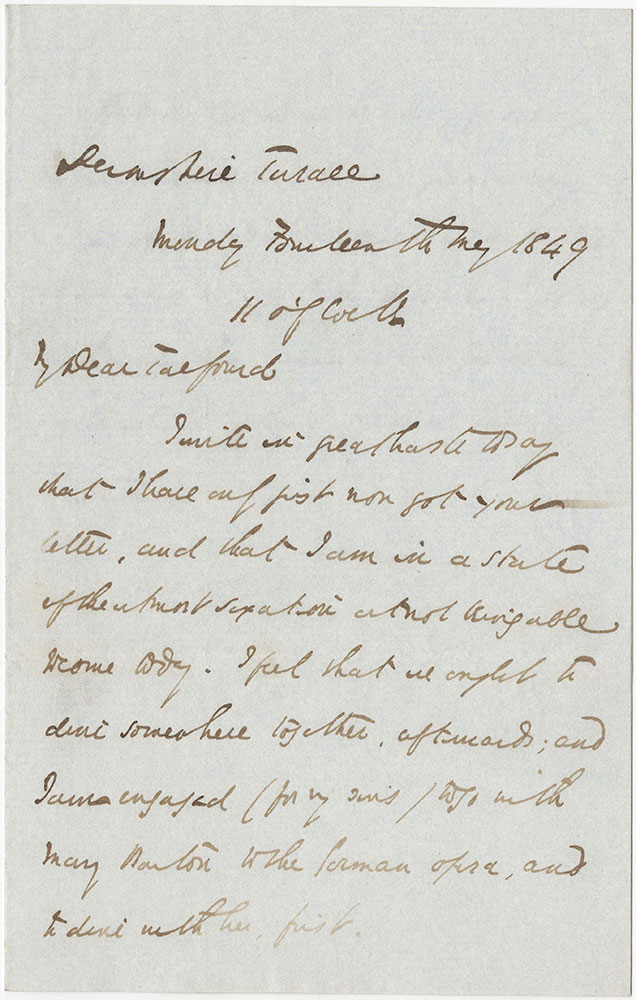 Devonshire Terrace
Monday Fourteenth May 1849
11 o'Clock
My Dear Talfourd
I write in great haste to say
that I have only just now got your
letter, and that I am in a state
of the utmost vexation at not being able
to come today. I feel that we ought to
dine somewhere together, afterwards; and
I am engaged (for my sins) to go with
Mary Barton to the German opera, and
to dine with her, first.